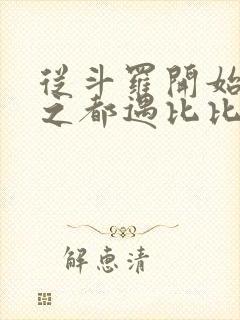 從斗羅開始
之都遇比比
解惠清